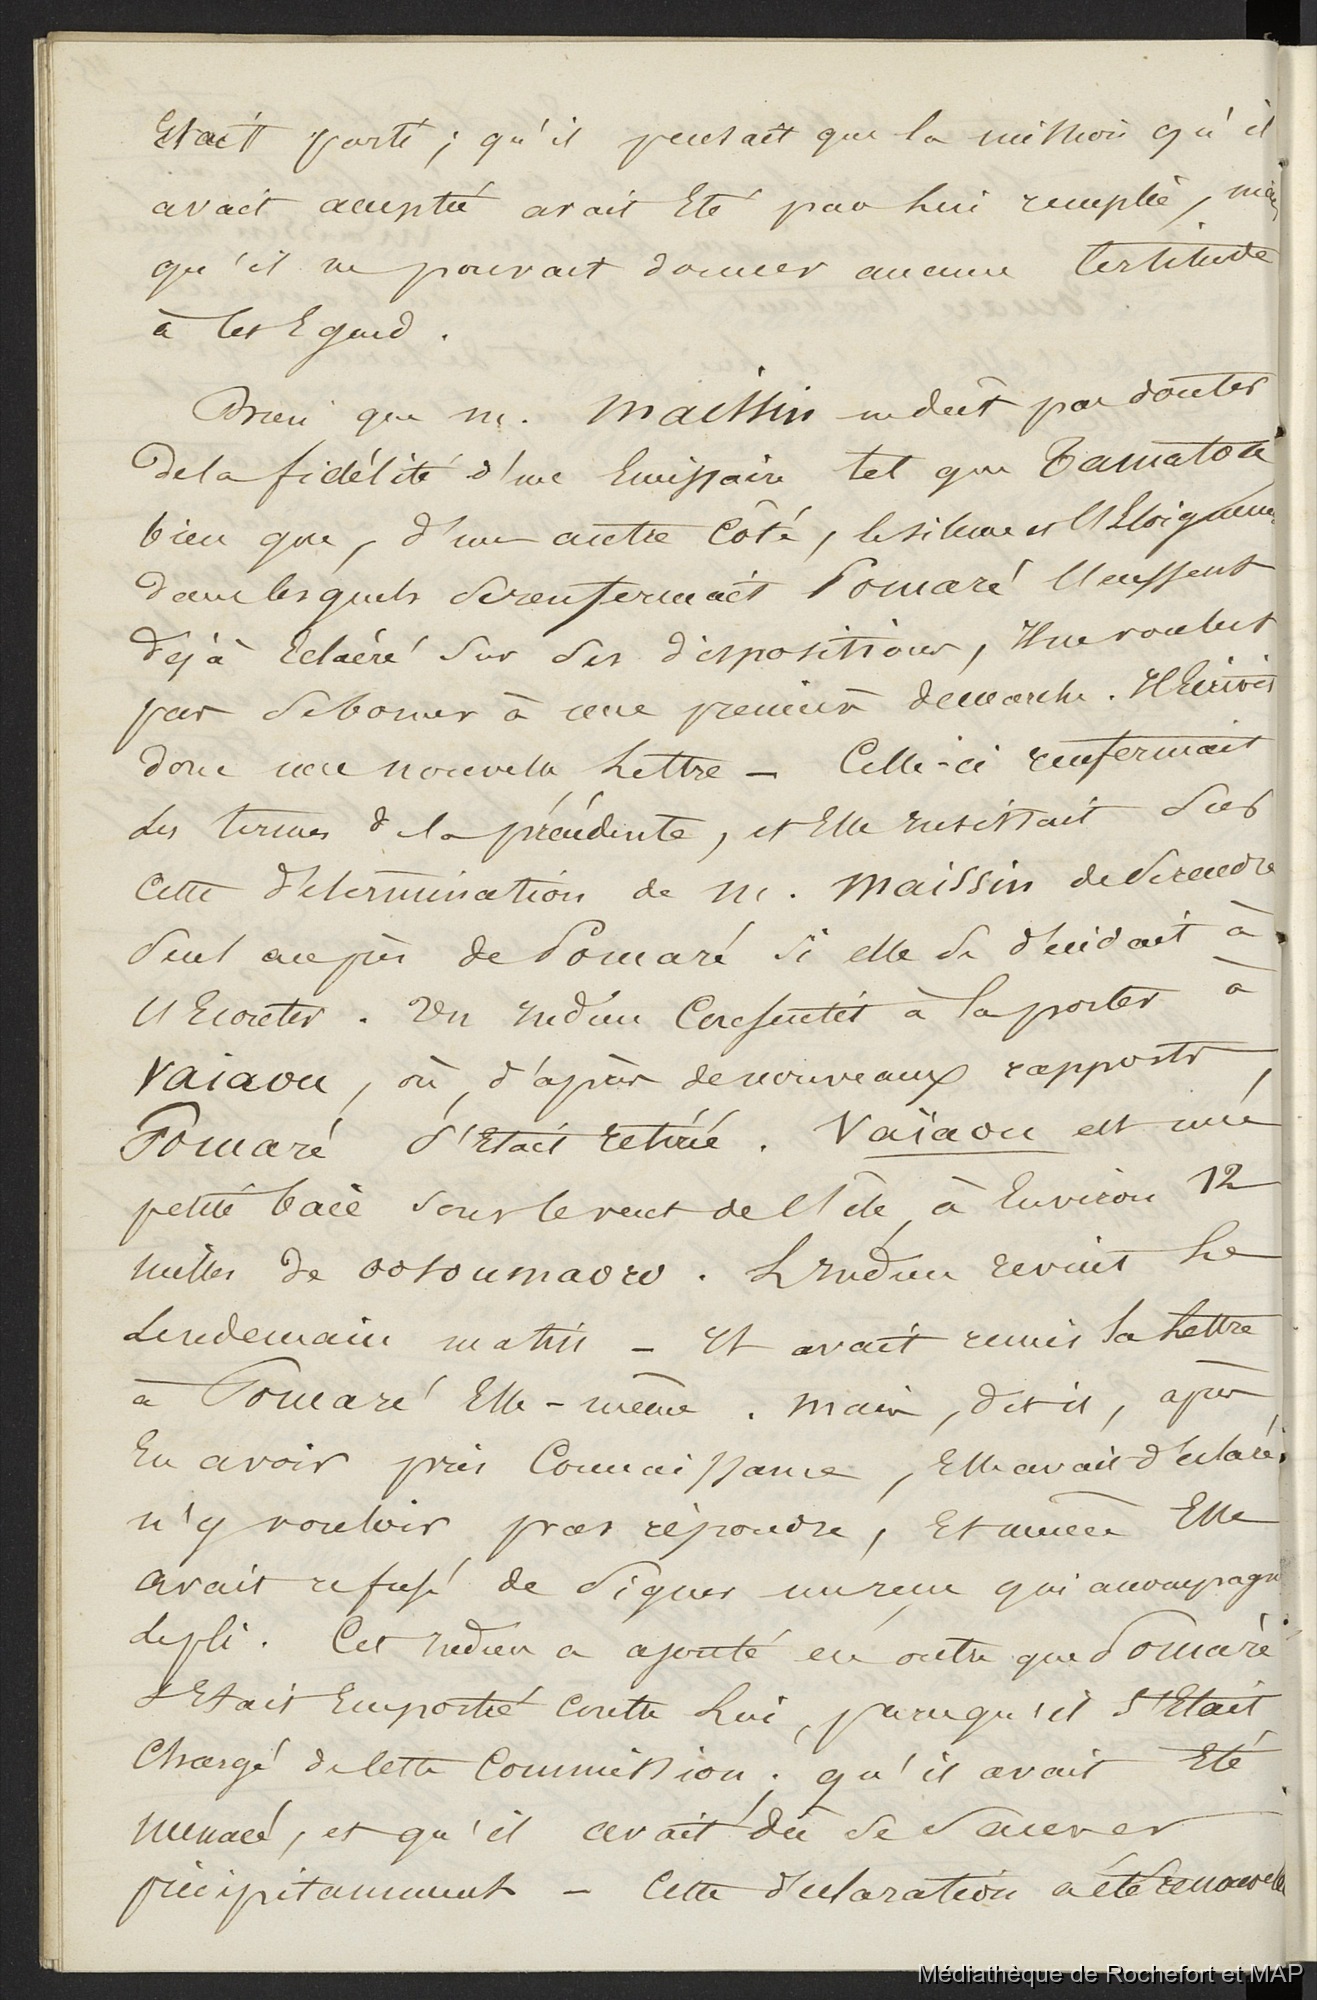 Etait parti ; qu'il pensait que la mission qu'il
avait acceptée avait Eté par Lui remplie, mais
qu'il ne pouvait donner aucune Certitude
à Cet Egard .
Bien que M. Maissin ne dût pas douter
De la fidélité d'un Emissaire tel que
bien que, d'un autre Côté, le silence et l'Eloignement
dans lesquels se renfermait Pomaré l'eussent
Déjà Eclairé sur ses dispositions, Il ne voulut
pas se borner à une première démarche. Il Ecrivit
donc une nouvelle Lettre - Celle-ci renfermait
Les termes de la précédente, et Elle insistait sur
Cette détermination de M. Maissin de se rendre
seul auprès de Pomaré si elle se décidait à
l'Ecouter . Un Indien Consentit à la porter à
Vaiaou, où, d'après de nouveaux rapports,
Pomaré s'Etait retirée . Vaïaou est une
petite baie sous le vent de l'île, à Environ 12
milles de ootoumaoro . L'Indien revint Le
Lendemain matin - Il avait remis la Lettre
à Pomaré Elle-même . Mais, dit il, après
En avoir pris Connaissance, Elle avait déclaré
n'y vouloir pas répondre, Et même Elle
avait refusé de signer un reçu qui accompagn
Le pli . Cet Indien a ajouté en outre que Pomaré
s'Etait Emportée contre Lui, parcequ'il s'Etait
Chargé de Cette Commission ; qu'il avait Eté
menacé, et qu'il avait dû se sauver
précipitamment - Cette déclaration a été renouvelée
Médiathèque de Rochefort et MAP